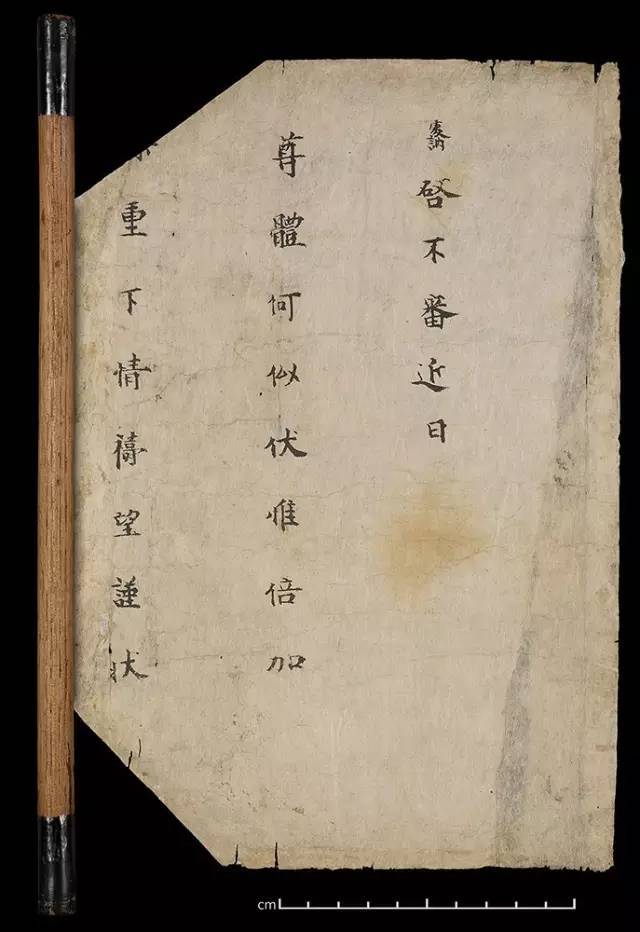 慶訥啓不審近日
尊體何似伏惟倍加
重下情禱望謹狀
cm